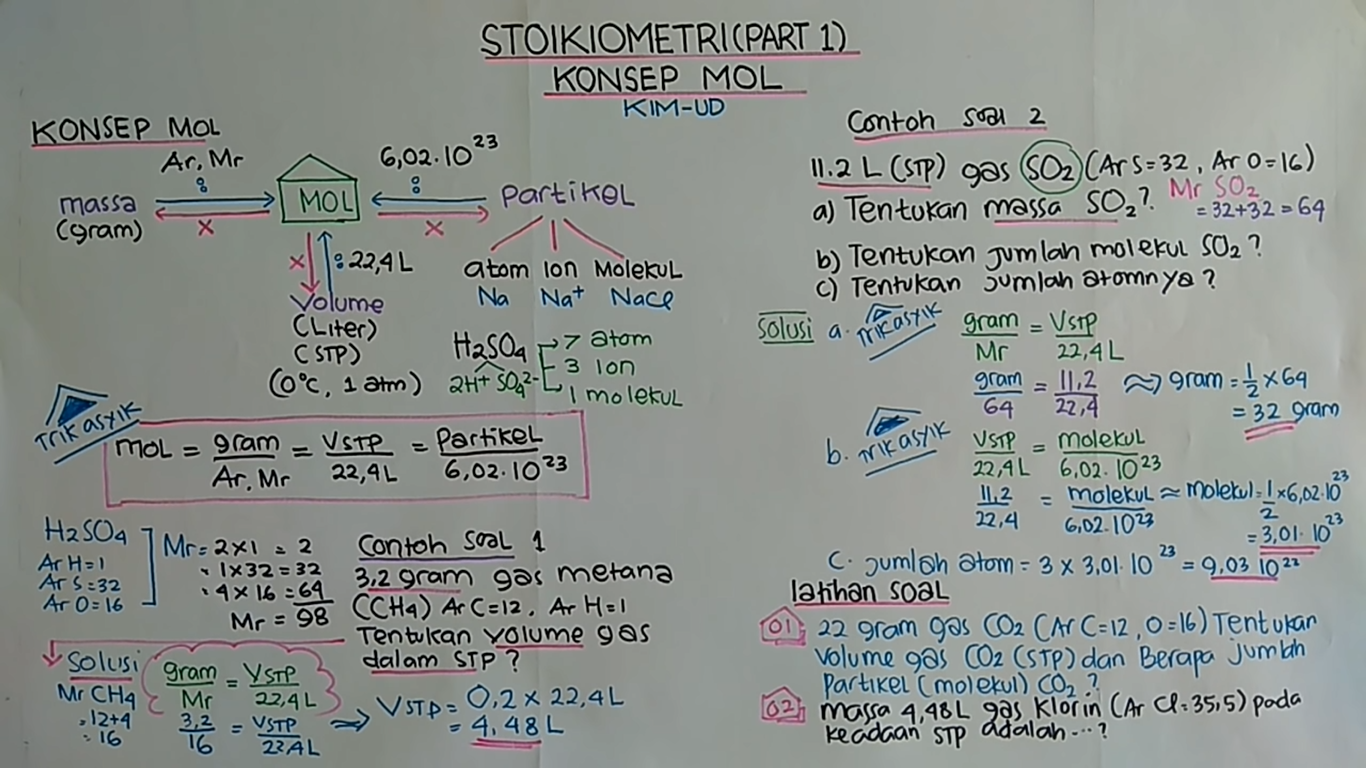 STOIKIOMETRI (PART 1)
KONSEP MOL
KIM-UD
KONSEP MOL
Ar, Mr
:
massa
(gram)
x
MOL
6,02.10²³
:
x
Partikel
x
: 22,4 L
Volume
(Liter)
(STP)
(0°C, 1 atm)
atom Ion Molekul
Na Na⁺ NaCl
H₂SO₄
2H⁺ SO₄²⁻
7 atom
3 Ion
1 molekul
Trik asyik
mol = gram/Ar, Mr = VSTP/22,4L = Partikel/6,02.10²³
H₂SO₄
Ar H = 1
Ar S = 32
Ar O = 16
Mr = 2 x 1 = 2
1 x 32 = 32
4 x 16 = 64
Mr = 98
Contoh Soal 1
3,2 gram gas metana
(CH₄) Ar C = 12, Ar H = 1
Tentukan volume gas
dalam STP ?
Solusi
Mr CH₄
= 12+4
= 16
gram/Mr = VSTP/22,4L
3,2/16 = VSTP/22,4L
⇒ VSTP = 0,2 x 22,4 L
= 4,48 L
Contoh soal 2
11.2 L (STP) gas SO₂ (Ar S = 32, Ar O = 16)
a) Tentukan massa SO₂?
Mr SO₂
= 32+32 = 64
b) Tentukan jumlah molekul SO₂ ?
c) Tentukan jumlah atomnya ?
Solusi a. Trik asyik
gram/Mr = VSTP/22,4 L
gram/64 = 11,2/22,4 ≈> gram = 1/2 x 64
= 32 gram
b. Trik asyik
VSTP/22,4L = molekul/6,02.10²³
11,2/22,4 = molekul/6,02.10²³ ≈ molekul = 1/2 x 6,02.10²³
= 3,01.10²³
C. jumlah atom = 3 x 3,01.10²³ = 9,03 10²²
latihan soal
01 22 gram gas CO₂ (Ar C = 12, O = 16) Tentukan
Volume gas CO₂ (STP) dan Berapa Jumlah
Partikel (molekul) CO₂ ?
02 massa 4,48L gas klorin (Ar Cl = 35,5) pada
keadaan STP adalah ...?